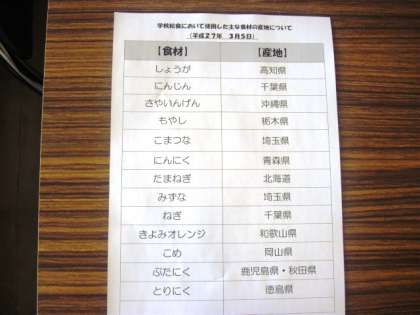 学校給食において使用した主な食材の産地について
(平成27年 3月5日)
【食材】 【産地】
しょうが 高知県
にんじん 千葉県
さやいんげん 沖縄県
もやし 栃木県
こまつな 埼玉県
にんにく 青森県
たまねぎ 北海道
みずな 埼玉県
ねぎ 千葉県
きよみオレンジ 和歌山県
こめ 岡山県
ぶたにく 鹿児島県・秋田県
とりにく 徳島県